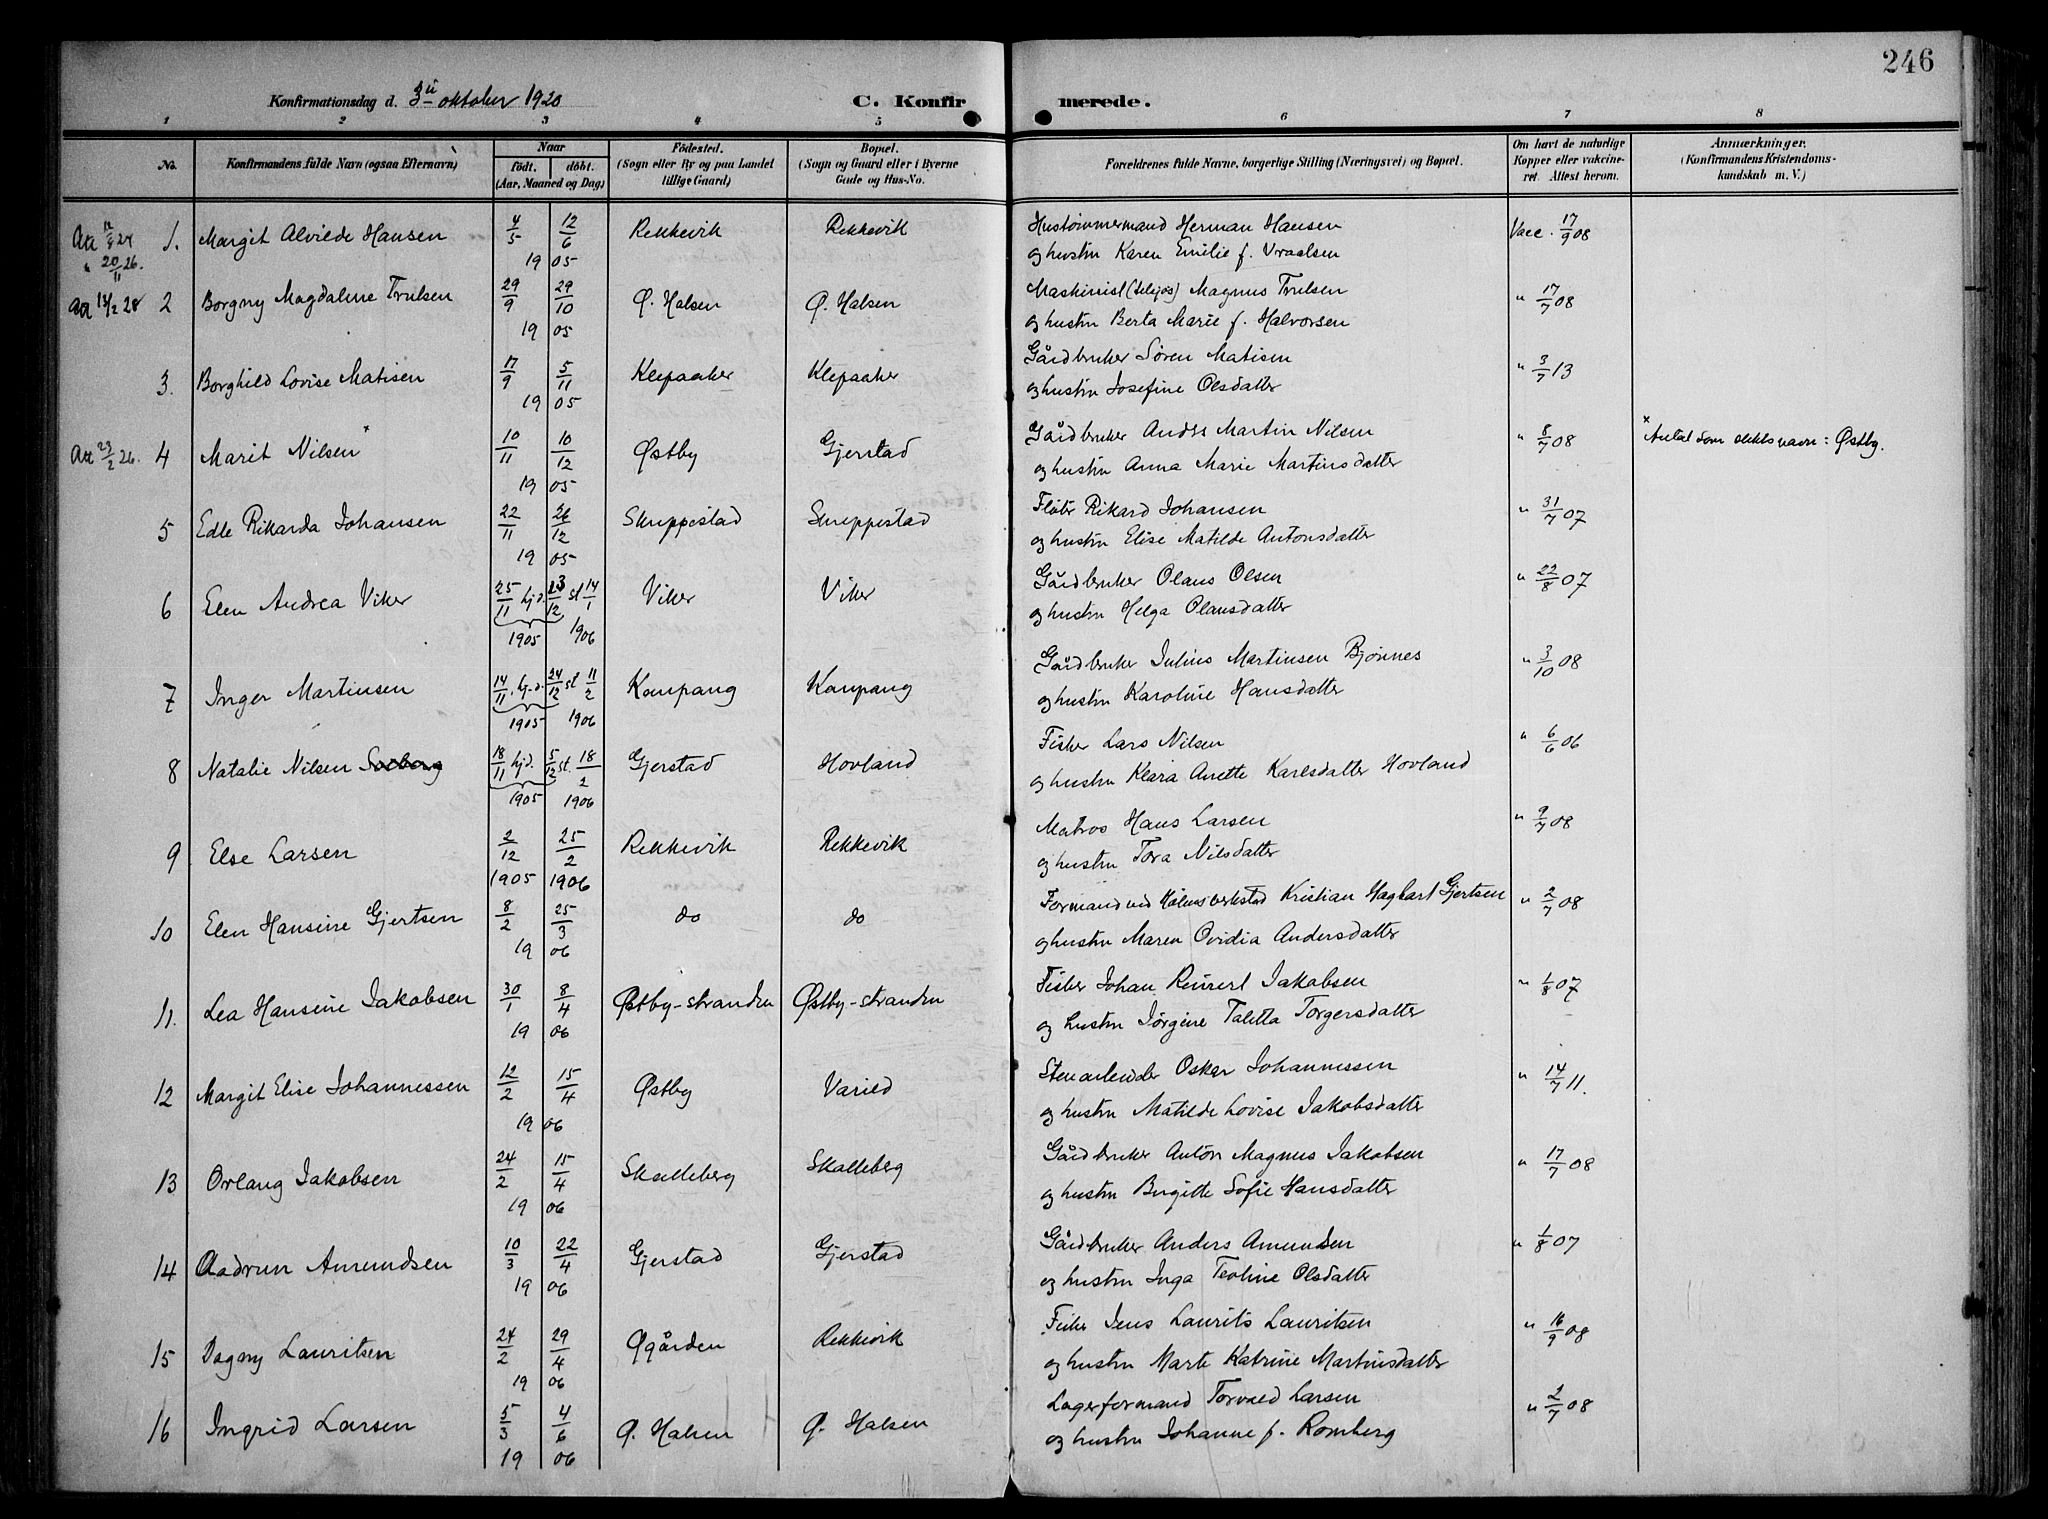 246
Konfirmationsdag d. 3die oktober 1920 C. Konfir merede.
1 2 3 4 5 6 7 8
No. Konfirmandens fulde Navn (ogsaa Efternavn) Naar født. døbt. (Aar, Maaned og Dag) Fødested. (Sogn eller By og paa Landet tillige Gaard) Bopæl. (Sogn og Gaard eller i Byerne Gade og Hus-No. Forældrenes fulde Navne, borgerlige Stilling (Næringsvei) og Bopæl. Om havt de naturlige Kopper eller vakcineret. Attest herom. Anmærkninger. (Konfirmandens Kristendomskundskab m. V.)
1. Margit Alvilde Hansen 4/5 12/6 Rekkevik Rekkevik Hustømmermand Herman Hansen Vacc. 17/9 08
" 20/11 26. 19 05 og hustru Karen Emilie f. Vraalsen
2 Borgny Magdalene Trulsen 29/9 29/10 Ø. Halsen Ø. Halsen Maskinist Magnus Trulsen " 17/7 08
19 05 og hustru Berta Marie f. Halvorsen
3. Borghild Lovise Matisen 17/9 5/11 Klepaaker Klepaaker Gårdbruker Søren Matisen " 3/7 13
19 05 og hustru Josefine Olsdatter
Att 23/2 26. 4 Marit Nilsen* 10/11 10/12 Østby Gjerstad Gårdbruker Anders Martin Nilsen " 8/7 08 * Antat som slektsnavn: Østby.
19 05 og hustru Anna Marie Martinsdatter
5 Edle Rikarda Johansen 22/11 26/12 Skreppestad Skreppestad Fløter Rikard Johansen " 31/7 07
19 05 og hustru Elise Matilde Antonsdatter
6 Elen Andrea Viker 25/11 hj.d. 23/12 st 14/1 Viker Viker Gårdbruker Olaus Olsen " 22/8 07
1905 1906 og hustru Helga Olausdatter
7 Inger Martinsen 14/11 hj.d. 24/12 st 11/2 Kaupang Kaupang Gårdbruker Julius Martinsen Bjønnes " 3/10 08
1905 1906 og hustru Karoline Hansdatter
8 Natalie Nilsen 18/11 hjd. 5/12 st. 18/2 Gjerstad Hovland Fisker Lars Nilsen " 6/6 06
1905 1906 og hustru Klara Anette Karlsdatter Hovland
9 Else Larsen 2/12 25/2 Rekkevik Rekkevik Matros Hans Larsen " 9/7 08
1905 1906 og hustru Tora Nilsdatter
10 Elen Hansine Gjertsen 8/2 25/3 do do Formand ved Kølens verksted Kristian Hagbart Gjertsen " 2/7 08
19 06 og hustru Maren Ovidia Andersdatter
11. Lea Hansine Jakobsen 30/1 8/4 Østby-stranden Østby-stranden Fisker Johan Reinert Jakobsen " 1/8 07
19 06 og hustru Jørgine Taletta Torgersdatter
12 Margit Elise Johannessen 12/2 15/4 Østby Varild Stenarbeider Oskar Johannessen " 14/7 11.
19 06 og hustru Matilde Lovise Jakobsdatter
13 Orlaug Jakobsen 24/2 15/4 Skalleberg Skalleberg Gårdbruker Anton Magnus Jakobsen " 17/7 08
19 06 og hustru Birgitte Sofie Hansdatter
14 Aadrun Amundsen 10/3 22/4 Gjerstad Gjerstad Gårdbruker Anders Amundsen " 1/8 07
19 06 og hustru Inga Teoline Olsdatter
15 Dagny Lauritsen 24/2 29/4 Øgården Rekkevik Fisker Jens Laurits Lauritsen " 16/9 08
19 06 og hustru Marte Katrine Martinsdatter
16 Ingrid Larsen 5/3 4/6 Ø. Halsen Ø. Halsen Lagerformand Torvald Larsen " 2/7 08
19 06 og hustru Johanne f. Romberg